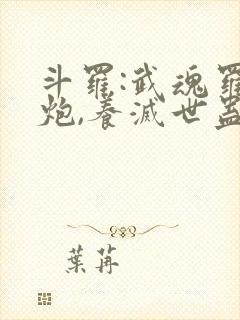 斗羅:武魂羅
炮,養滅世蠱
葉苒